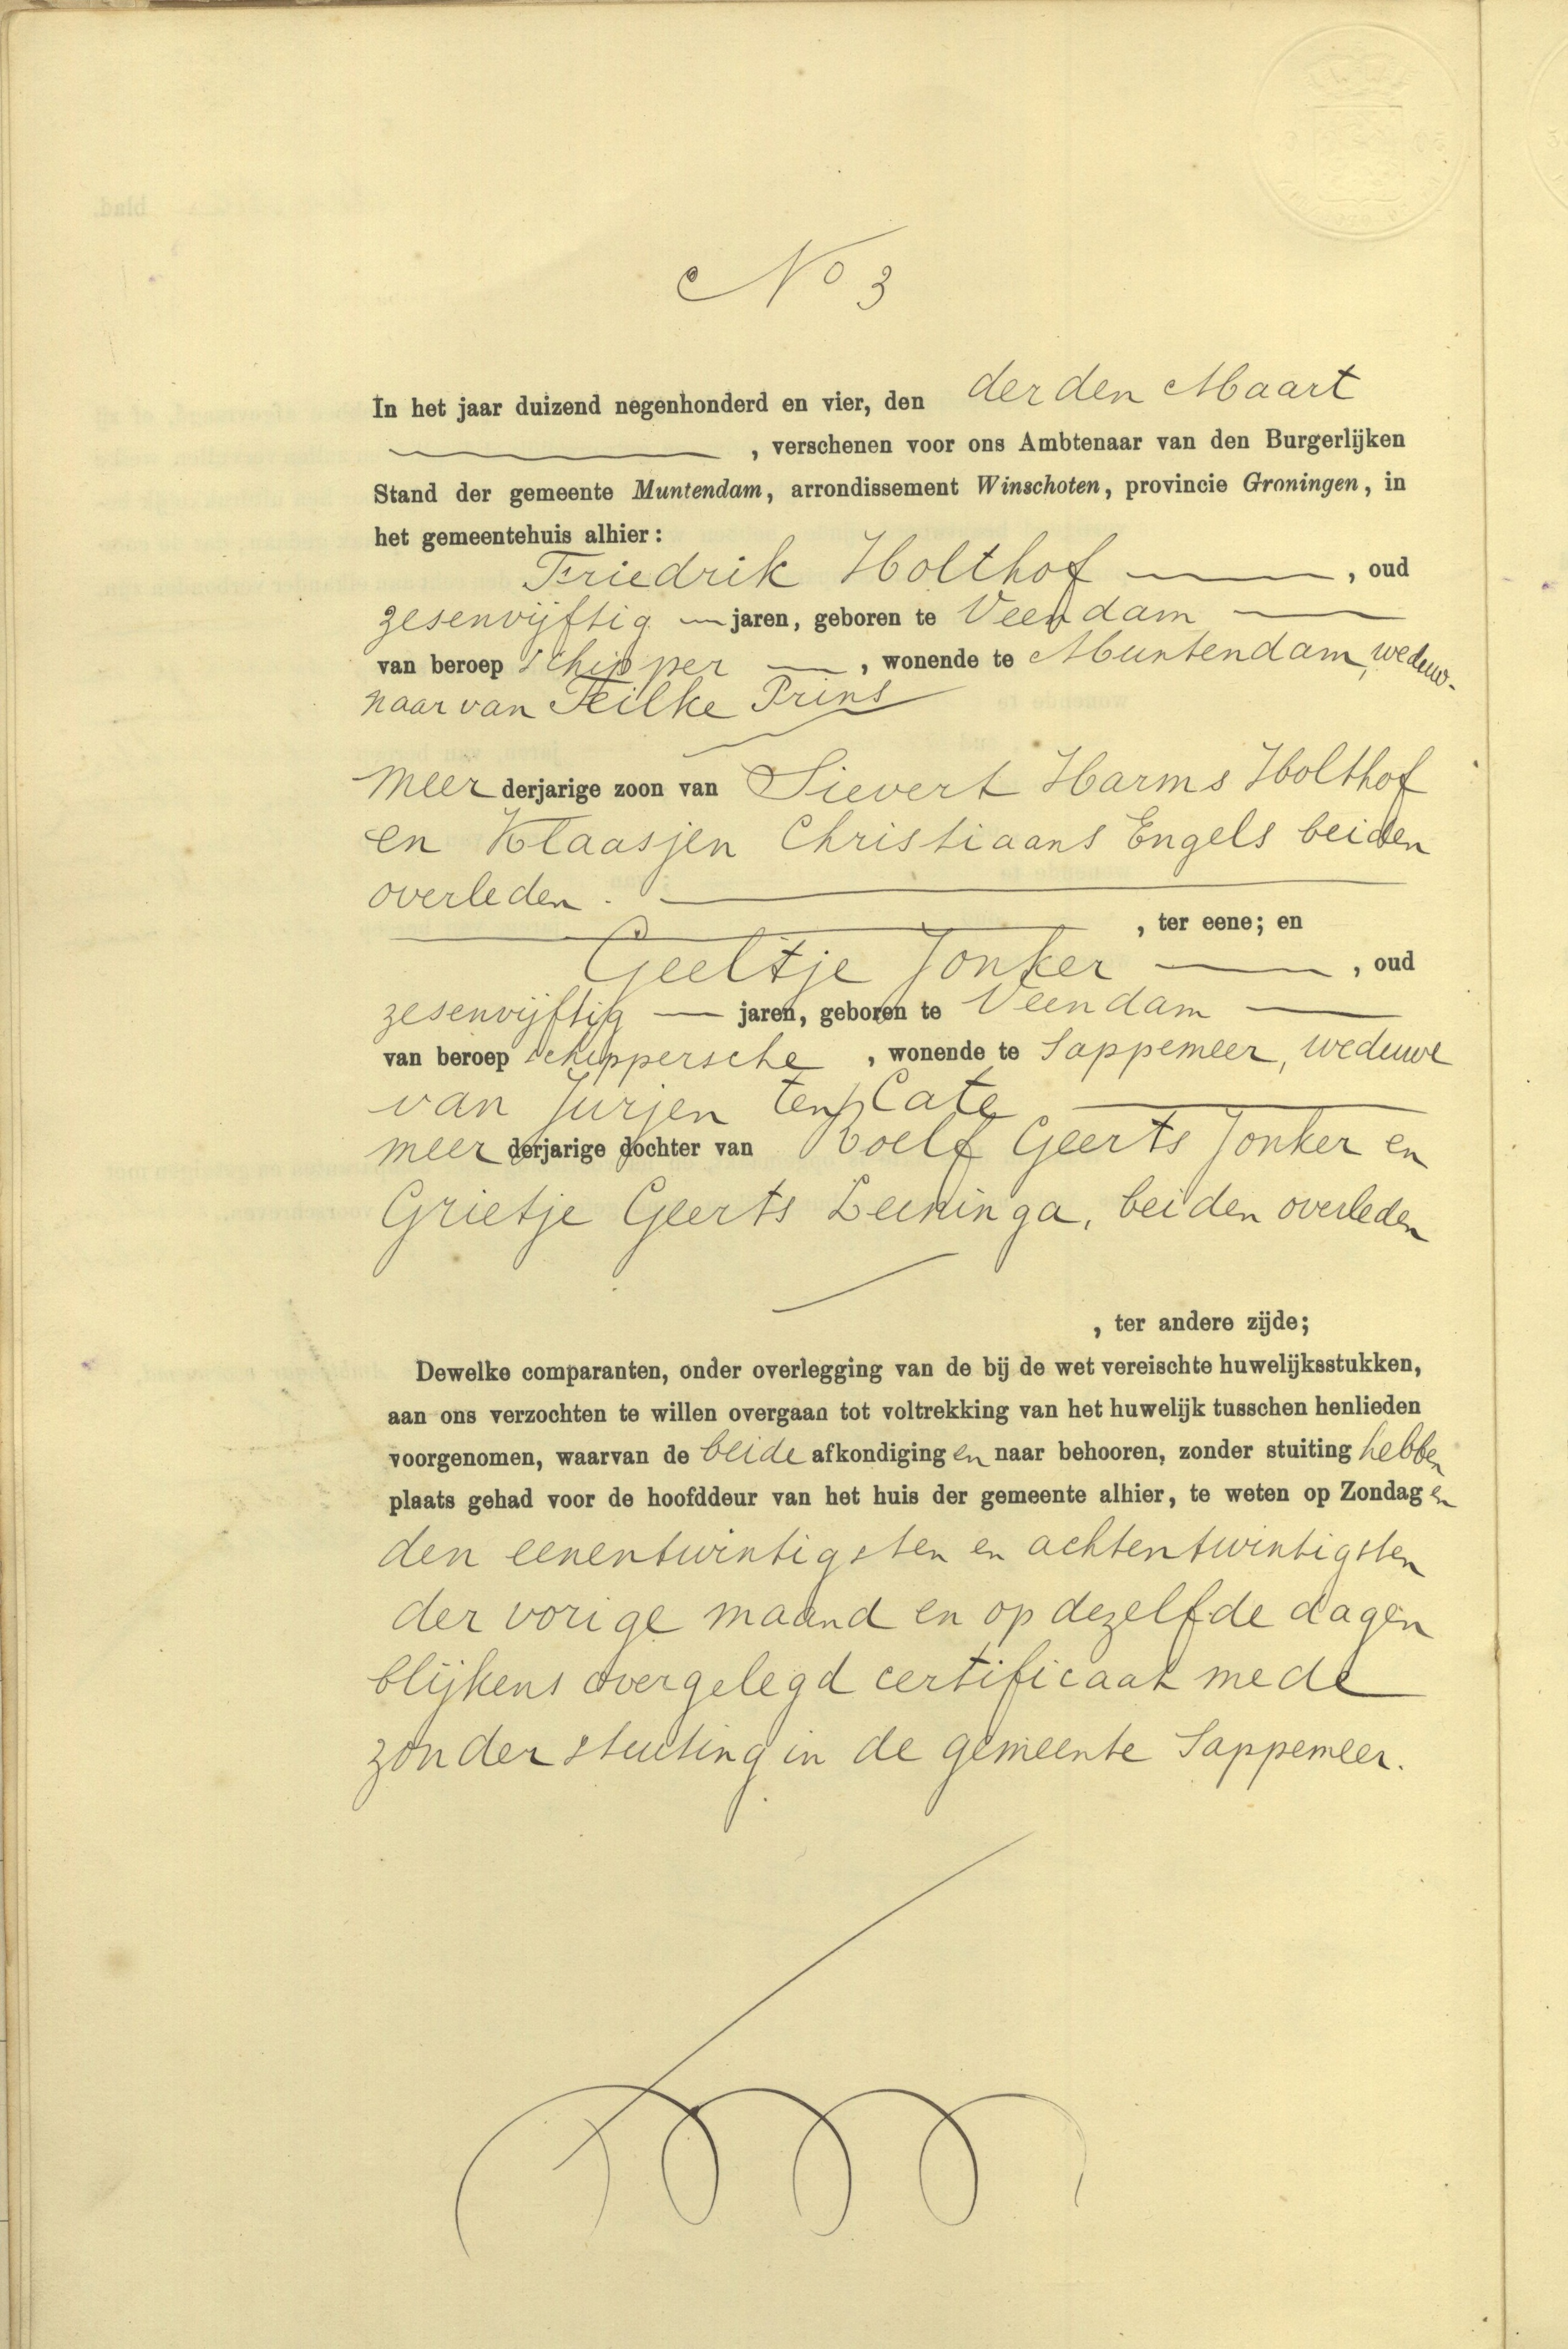 No 3
In het jaar duizend negenhonderd en vier, den derden Maart
, verschenen voor ons Ambtenaar van den Burgerlijken
Stand der gemeente Muntendam, arrondissement Winschoten, provincie Groningen, in
het gemeentehuis alhier:
Friedrik Holthof , oud
zesenvijftig jaren, geboren te Veendam
van beroep schipper , wonende te Muntendam, weduw-
naar van Feilke Prins
meerderjarige zoon van Sievert Harms Holthof
en Klaasjen Christiaans Engels beiden
overleden.
, ter eene; en
Geeltje Jonker , oud
zesenvijftig jaren, geboren te Veendam
van beroep schippersche , wonende te Sappemeer, weduwe
van Jurjen ten Cate
meerderjarige dochter van Roelf Geerts Jonker en
Grietje Geerts Leininga, beiden overleden
, ter andere zijde;
Dewelke comparanten, onder overlegging van de bij de wet vereischte huwelijksstukken,
aan ons verzochten te willen overgaan tot voltrekking van het huwelijk tusschen henlieden
voorgenomen, waarvan de beide afkondigingen naar behooren, zonder stuiting hebben
plaats gehad voor de hoofddeur van het huis der gemeente alhier, te weten op Zondagen
den eenentwintigsten en achtentwintigsten
der vorige maand en op dezelfde dagen
blijkens overgelegd certificaat mede
zonder stuiting in de gemeente Sappemeer.